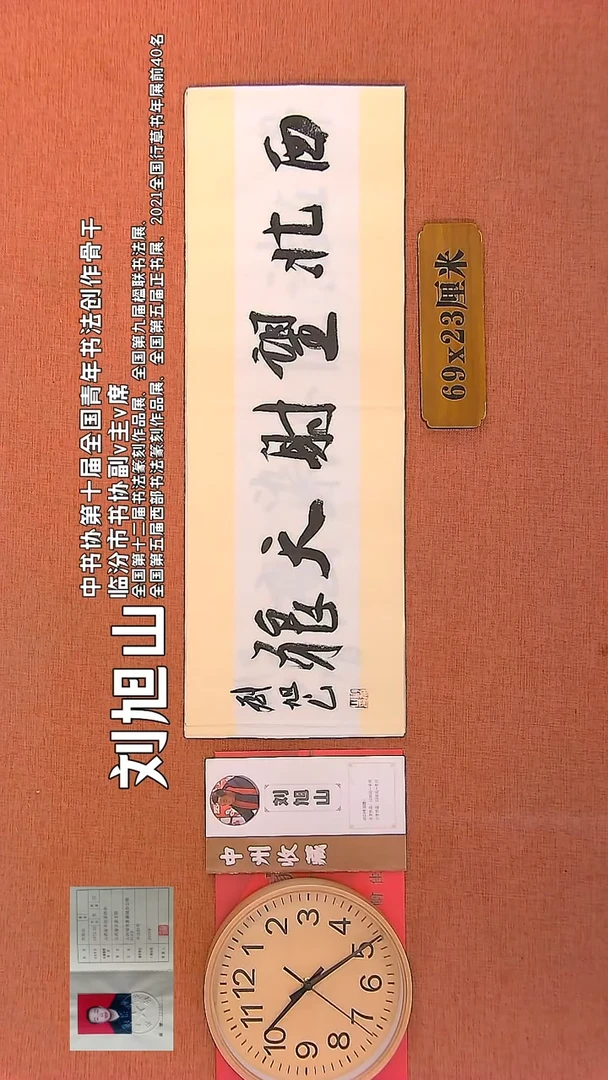 刘旭山
中书协第十届全国青年书法创作骨干
临汾市书协副v主v席
全国第十二届书法篆刻作品展、全国第九届楹联书法展、
全国第五届西部书法篆刻作品展、全国第五届正书展、2021全国行草书年展前40名
西北望射天狼
刘旭山
69x23厘米
刘旭山
中州收藏
12
1
2
3
4
5
6
7
8
9
10
11